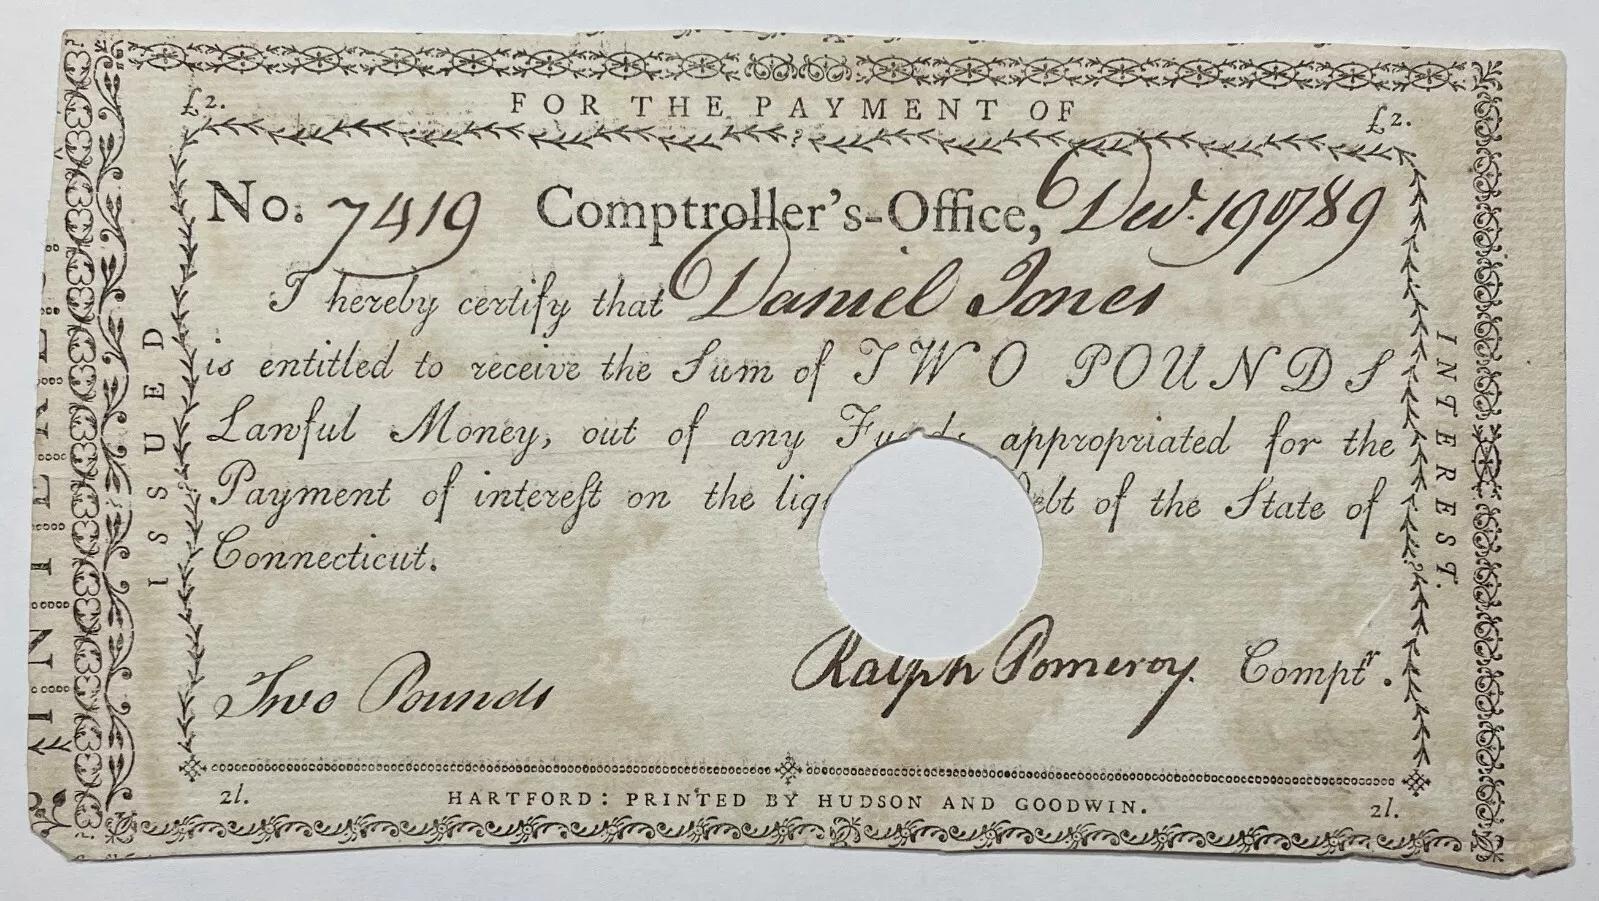 £2. FOR THE PAYMENT OF £2.
No. 7419 Comptroller's-Office, Decr. 19 1789
I hereby certify that Daniel Jones
is entitled to receive the Sum of TWO POUNDS
Lawful Money, out of any Funds appropriated for the
Payment of intereſt on the liq ebt of the State of
Connecticut.
Ralph Pomeroy. Comptr.
Two Pounds
2l. HARTFORD: PRINTED BY HUDSON AND GOODWIN. 2l.
ISSUED
INTEREST.